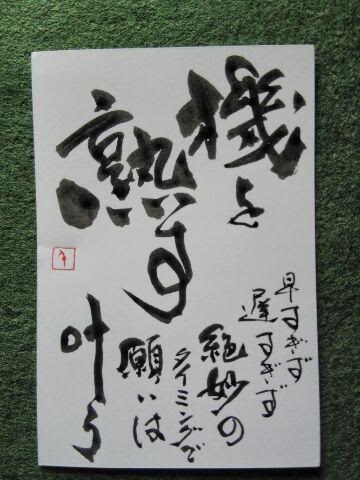 機を
熟す
早すぎず
遅すぎず
絶妙の
タイミングで
願いは
叶う